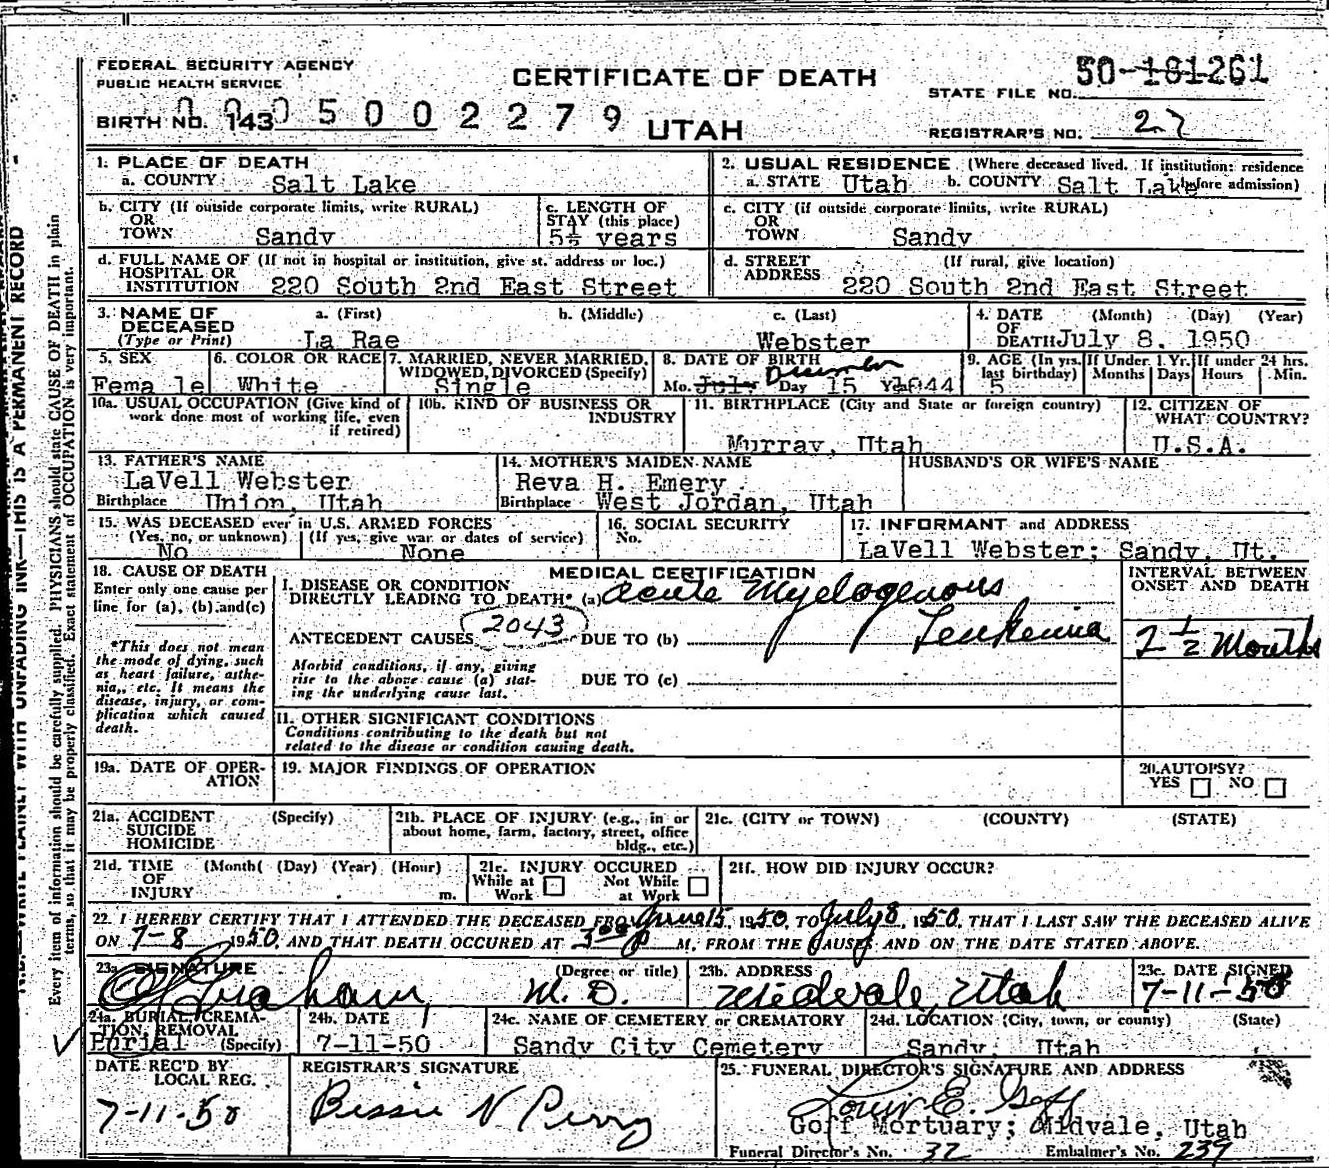 FEDERAL SECURITY AGENCY
PUBLIC HEALTH SERVICE
CERTIFICATE OF DEATH
STATE FILE NO. 50-181261
BIRTH NO. 143 0005002279
UTAH
REGISTRAR'S NO. 27
1. PLACE OF DEATH
a. COUNTY Salt Lake
2. USUAL RESIDENCE (Where deceased lived. If institution: residence before admission)
a. STATE Utah b. COUNTY Salt Lake
b. CITY (If outside corporate limits, write RURAL)
OR
TOWN Sandy
c. LENGTH OF
STAY (this place)
5½ years
c. CITY (if outside corporate limits, write RURAL)
OR
TOWN Sandy
d. FULL NAME OF (If not in hospital or institution, give st. address or loc.)
HOSPITAL OR
INSTITUTION 220 South 2nd East Street
d. STREET (If rural, give location)
ADDRESS 220 South 2nd East Street
3. NAME OF a. (First) b. (Middle) c. (Last)
DECEASED
(Type or Print) La Rae Webster
4. DATE (Month) (Day) (Year)
OF
DEATH July 8, 1950
5. SEX
Fema le
6. COLOR OR RACE
White
7. MARRIED, NEVER MARRIED,
WIDOWED, DIVORCED (Specify)
Single
8. DATE OF BIRTH
December
Mo. July Day 15 Yr. 1944
9. AGE (In yrs. last birthday)
5
If Under 1 Yr.
Months Days
If under 24 hrs.
Hours Min.
10a. USUAL OCCUPATION (Give kind of
work done most of working life, even
if retired)
10b. KIND OF BUSINESS OR
INDUSTRY
11. BIRTHPLACE (City and State or foreign country)
Murray, Utah
12. CITIZEN OF
WHAT COUNTRY?
U.S.A.
13. FATHER'S NAME
LaVell Webster
Birthplace Union, Utah
14. MOTHER'S MAIDEN NAME
Reva H. Emery
Birthplace West Jordan, Utah
HUSBAND'S OR WIFE'S NAME
15. WAS DECEASED ever in U.S. ARMED FORCES
(Yes, no, or unknown) (If yes, give war or dates of service)
No None
16. SOCIAL SECURITY
No.
17. INFORMANT and ADDRESS
LaVell Webster; Sandy, Ut.
18. CAUSE OF DEATH
Enter only one cause per
line for (a), (b) and (c)
*This does not mean
the mode of dying, such
as heart failure, asthe-
nia, etc. It means the
disease, injury, or com-
plication which caused
death.
MEDICAL CERTIFICATION
I. DISEASE OR CONDITION
DIRECTLY LEADING TO DEATH* (a) Acute Myelogenous
ANTECEDENT CAUSES 2043 DUE TO (b) Leukemia
Morbid conditions, if any, giving
rise to the above cause (a) stat-
ing the underlying cause last.
DUE TO (c)
INTERVAL BETWEEN
ONSET AND DEATH
2 ½ Months
II. OTHER SIGNIFICANT CONDITIONS
Conditions contributing to the death but not
related to the disease or condition causing death.
19a. DATE OF OPER-
ATION
19. MAJOR FINDINGS OF OPERATION
20. AUTOPSY?
YES NO
21a. ACCIDENT (Specify)
SUICIDE
HOMICIDE
21b. PLACE OF INJURY (e.g., in or
about home, farm, factory, street, office
bldg., etc.)
21c. (CITY or TOWN) (COUNTY) (STATE)
21d. TIME (Month( (Day) (Year) (Hour)
OF
INJURY m.
21e. INJURY OCCURED
While at Work Not While at Work
21f. HOW DID INJURY OCCUR?
22. I HEREBY CERTIFY THAT I ATTENDED THE DECEASED FROM June 15, 1950, TO July 8, 1950, THAT I LAST SAW THE DECEASED ALIVE
ON 7-8 1950, AND THAT DEATH OCCURED AT 3 00 P M, FROM THE CAUSES AND ON THE DATE STATED ABOVE.
23a. SIGNATURE (Degree or title)
Graham, M. D.
23b. ADDRESS
Midvale, Utah
23c. DATE SIGNED
7-11-50
24a. BURIAL, CREMA-
TION, REMOVAL
Burial (Specify)
24b. DATE
7-11-50
24c. NAME OF CEMETERY or CREMATORY
Sandy City Cemetery
24d. LOCATION (City, town, or county) (State)
Sandy, Utah
DATE REC'D BY
LOCAL REG.
7-11-50
REGISTRAR'S SIGNATURE
Bessie N Perry
25. FUNERAL DIRECTOR'S SIGNATURE AND ADDRESS
Louis E. Goff
Goff Mortuary; Midvale, Utah
Funeral Director's No. 32 Embalmer's No. 239
WRITE PLAINLY WITH UNFADING INK—THIS IS A PERMANENT RECORD
Every item of information should be carefully supplied. PHYSICIANS should state CAUSE OF DEATH in plain
terms, so that it may be properly classified. Exact statement of OCCUPATION is very important.